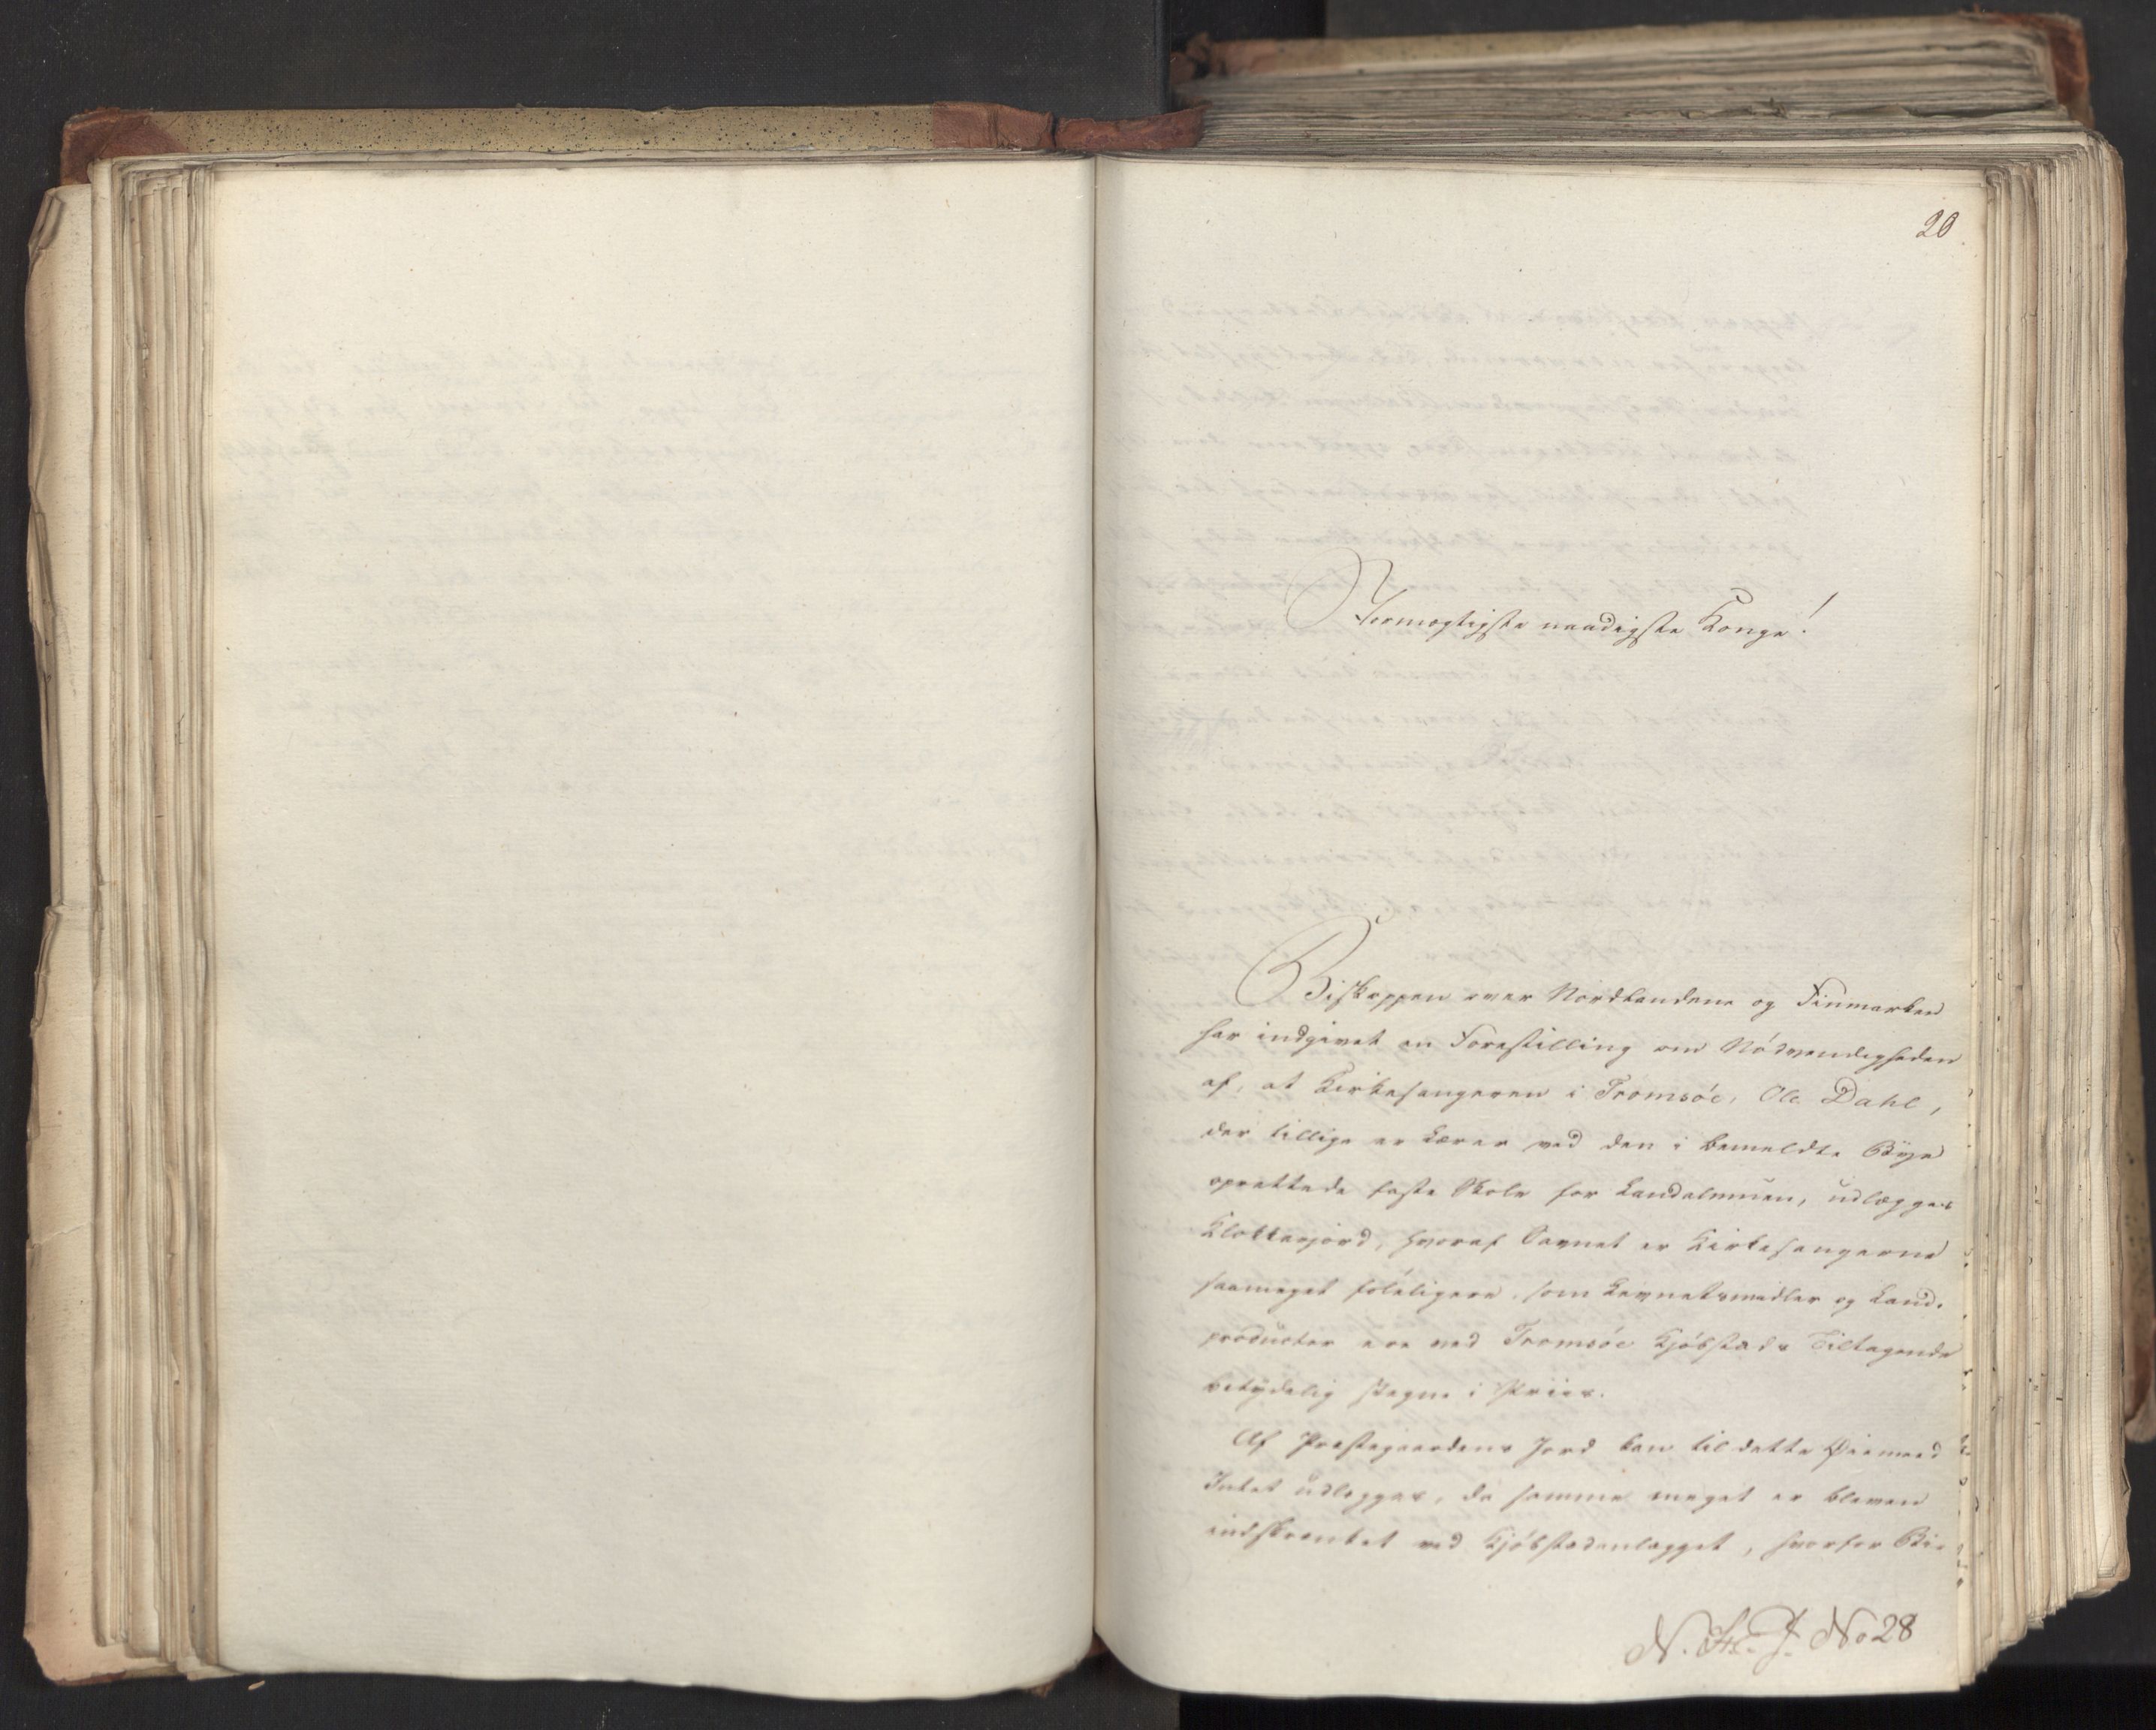 20
Stormægtigste naadigste Konge!
Biskoppen over Nordlandene og Finmarken
har indgivet en Forestilling om Nödvendigheden
af, at Kirkesangeren i Tromsöe, Ole Dahl,
der tillige er Lærer ved den i bemeldte Bÿe
oprettede faste Skole for Landalmuen, udlægges
Klokkerjord, hvoraf Savnet er Kirkesangerne
saameget föleligere, som Levnetsmidler og Land-
producter ere ved Tromsöe Kjöbstads Tiltagende
betÿdelig stegne i Priis.
Af Præstegaardens Jord kan til dette Øiemeed
Intet udlægges, da samme meget er bleven
indskrænket ved Kjöbstadanlægget, hvorfor Bi-
No 28